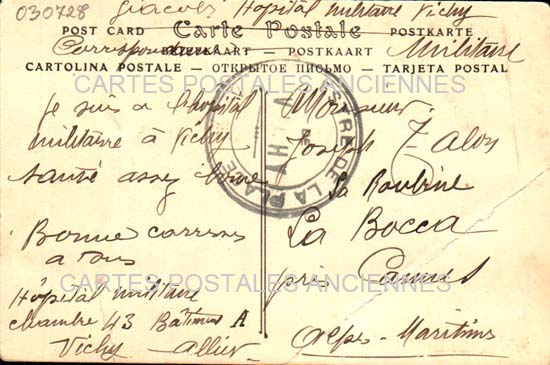 030728
Giacobi Hopital militaire Vichy
POST CARD Carte Postale POSTKARTE
BRIEFKAART — POSTKAART
Correspondance Militaire
CARTOLINA POSTALE — ОТКРЫТОЕ ПИСЬМО — TARJETA POSTAL
CARTES POSTALES ANCIENNES
Je suis a l'hopital
militaire à Vichy
santé assez bonne
Bonne caresses
a tous
Hôpital militaire
chambre 43 Batiment A
Vichy Allier
Monsieur
Joseph
La Roubine
La Bocca
près Cannes
Alpes-Maritimes
DE LA PLACE
CARTES POSTALES ANCIENNES